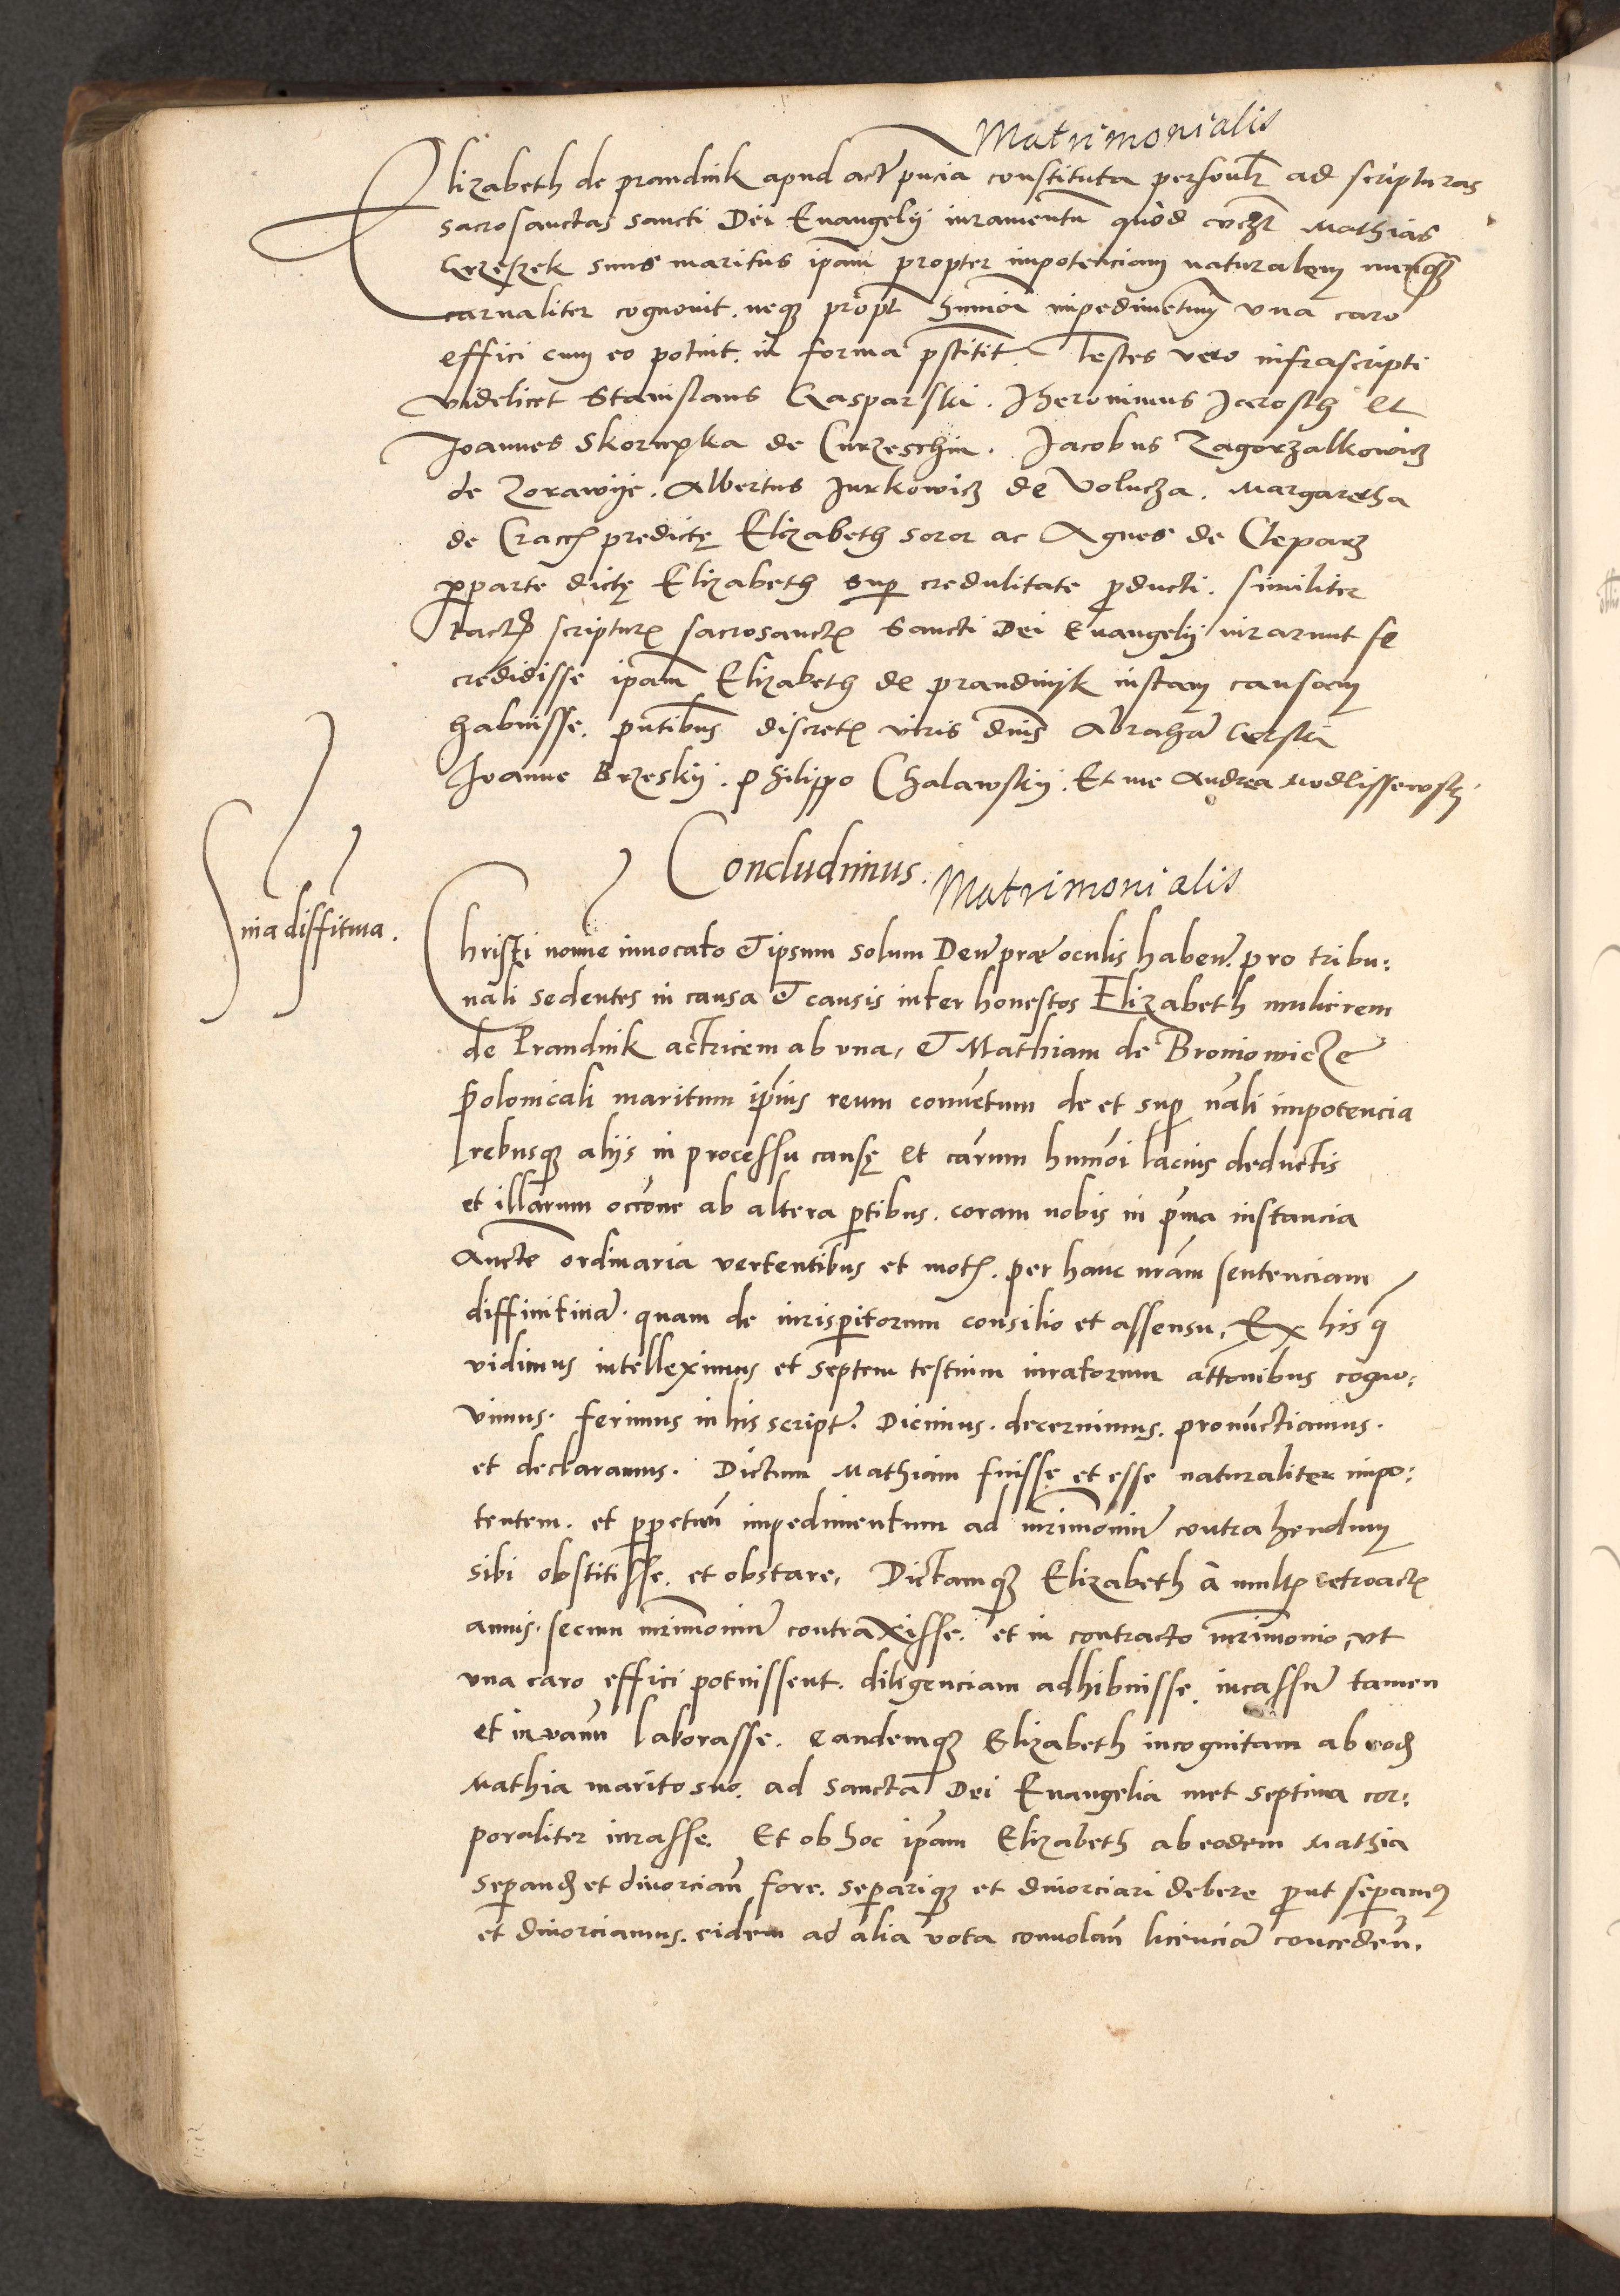 Matrimonialis
Elizabeth de prandnik apud act pncia constituta personlr ad scripturas
sacrosanctas sancti Dei Euangelij iuramentu quod Mathias
suus maritus ipam propter impotenciam naturalem nunq
carnaliter cognouit. neq propt hmoi impedimetum vna caro
effici cum eo potuit. in forma pstitit. Testes vero infrascripti
videlicet Stanislaus Gasparski. Jheronimus et
Joannes Skorupka de Curzeschin. Jacobus Zagorzalkowicz
de Zorawije. Albertus Jurkowicz de Volucza. Margaretha
de Cracc predictę Elizabeth soror ac Agnes de Cleparz
pparte dictę Elizabeth sup credulitate pducti. similiter
tact scriptur sacrosanct Sancti Dei Euangelij iurarunt se
credidisse ipam Elizabeth de prandnijk iustam causam
habuisse. pntibus discret viris dnis Abraha
Joanne Brzeskij. Philippo Chalawskij. Et me Andrea Modlissewsky.
Concludimus. Matrimonialis
Snia diffitiua.
Christi nomine inuocato & ipsum solum Deu præ oculis haben. pro tribu:
nali sedentes in causa & causis inter honestos Elizabeth mulierem
de Prandnik actricem ab vna, & Mathiam de Broniowicze
Polonicali maritum ipius reum conuetum de et sup nali impotencia
rebusq alijs in processu causę et carum hmoi lacius deductis
et illarum occone ab altera ptibus. coram nobis in pma instancia
Aucte ordinaria vertentibus et mot. per hanc nram sentenciam
diffinitiua. quam de iurispitorum consilio et assensu, Ex his q
vidimus intelleximus et septem testium iuratorum attonibus cogno:
vimus. ferimus in his script. Dicimus. decernimus. pronuctiamus.
et declaramus. Dictum Mathiam fuisse et esse naturaliter impo:
tentem. et ppetuu impedimentum ad mrimoniu contrahendum
sibi obstitisse. et obstare, Dictamq Elizabeth a mult retroact
annis. secum mrimoniu contraxisse. et in contracto mrimonio, vt
vna caro effici potuissent. diligenciam adhibuisse. incassu tamen
et in vanu laborasse. eandemq Elizabeth incognitam ab eod
Mathia marito suo. ad sancta Dei Euangelia met septima cor:
poraliter iurasse. Et ob hoc ipam Elizabeth ab eodem Mathia
sepand et diuorcian fore. separiq et diuorciari debere put sepamus
et diuorciamus. eidem ad alia vota conuolan licencia conceden.